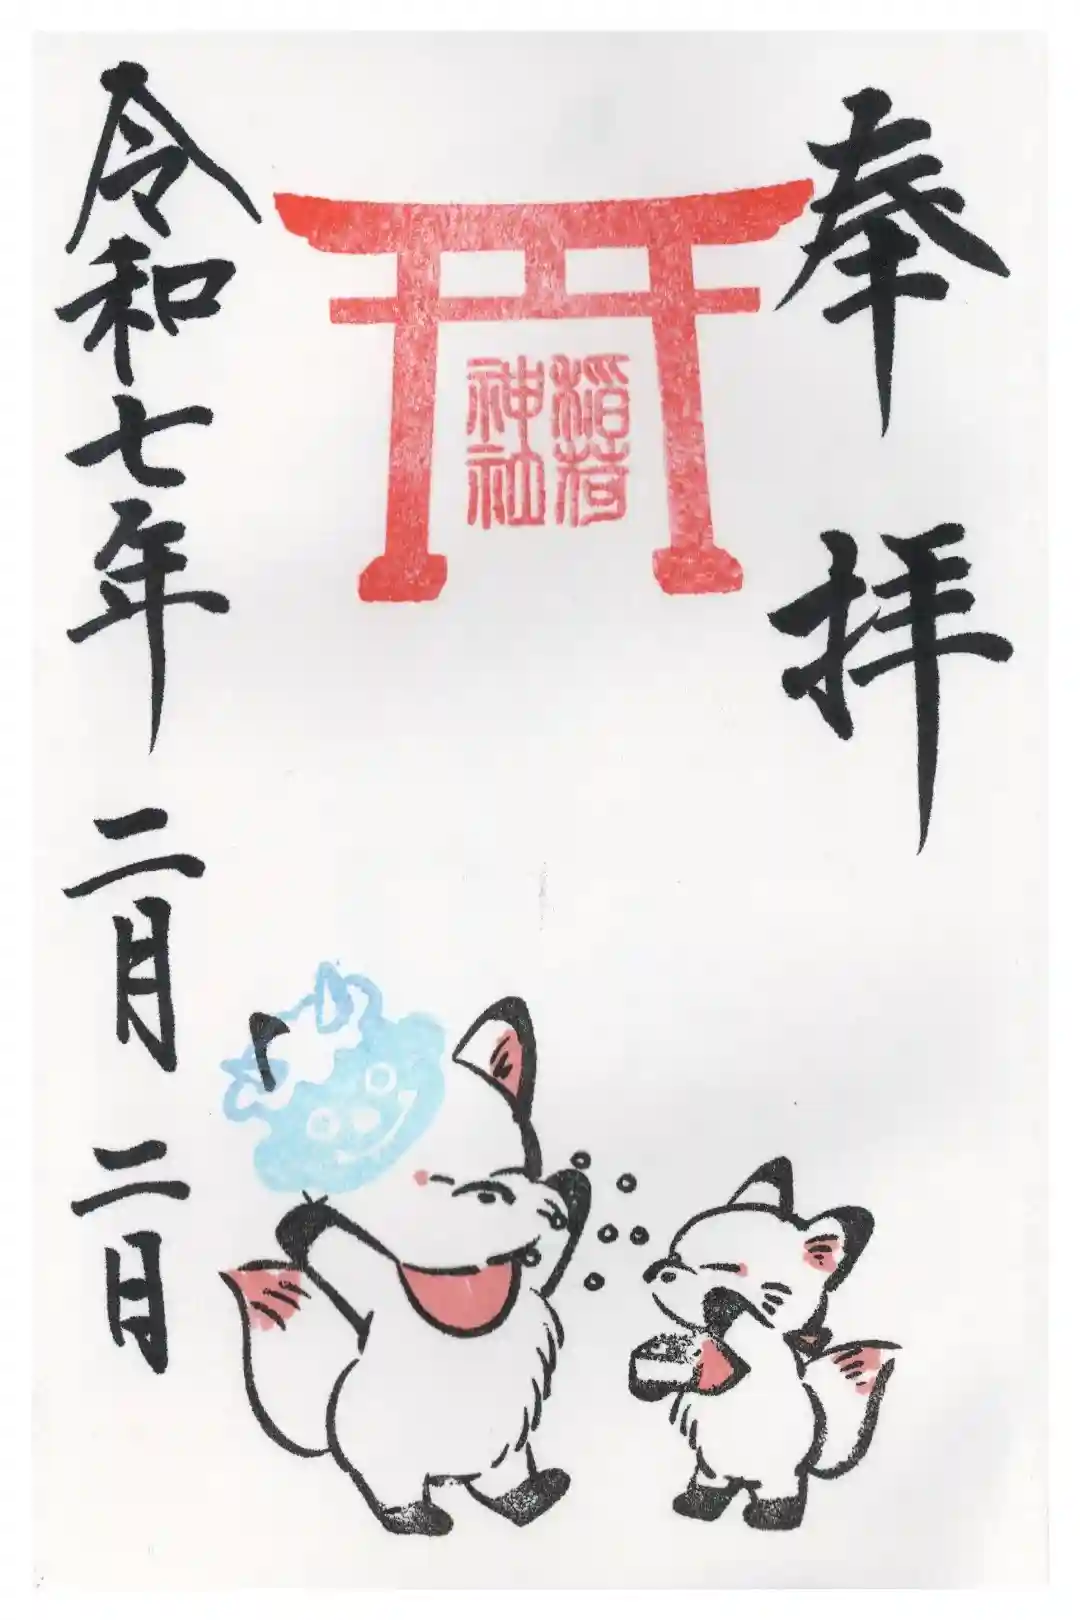 奉拝
稲荷
神社
令和七年二月二日